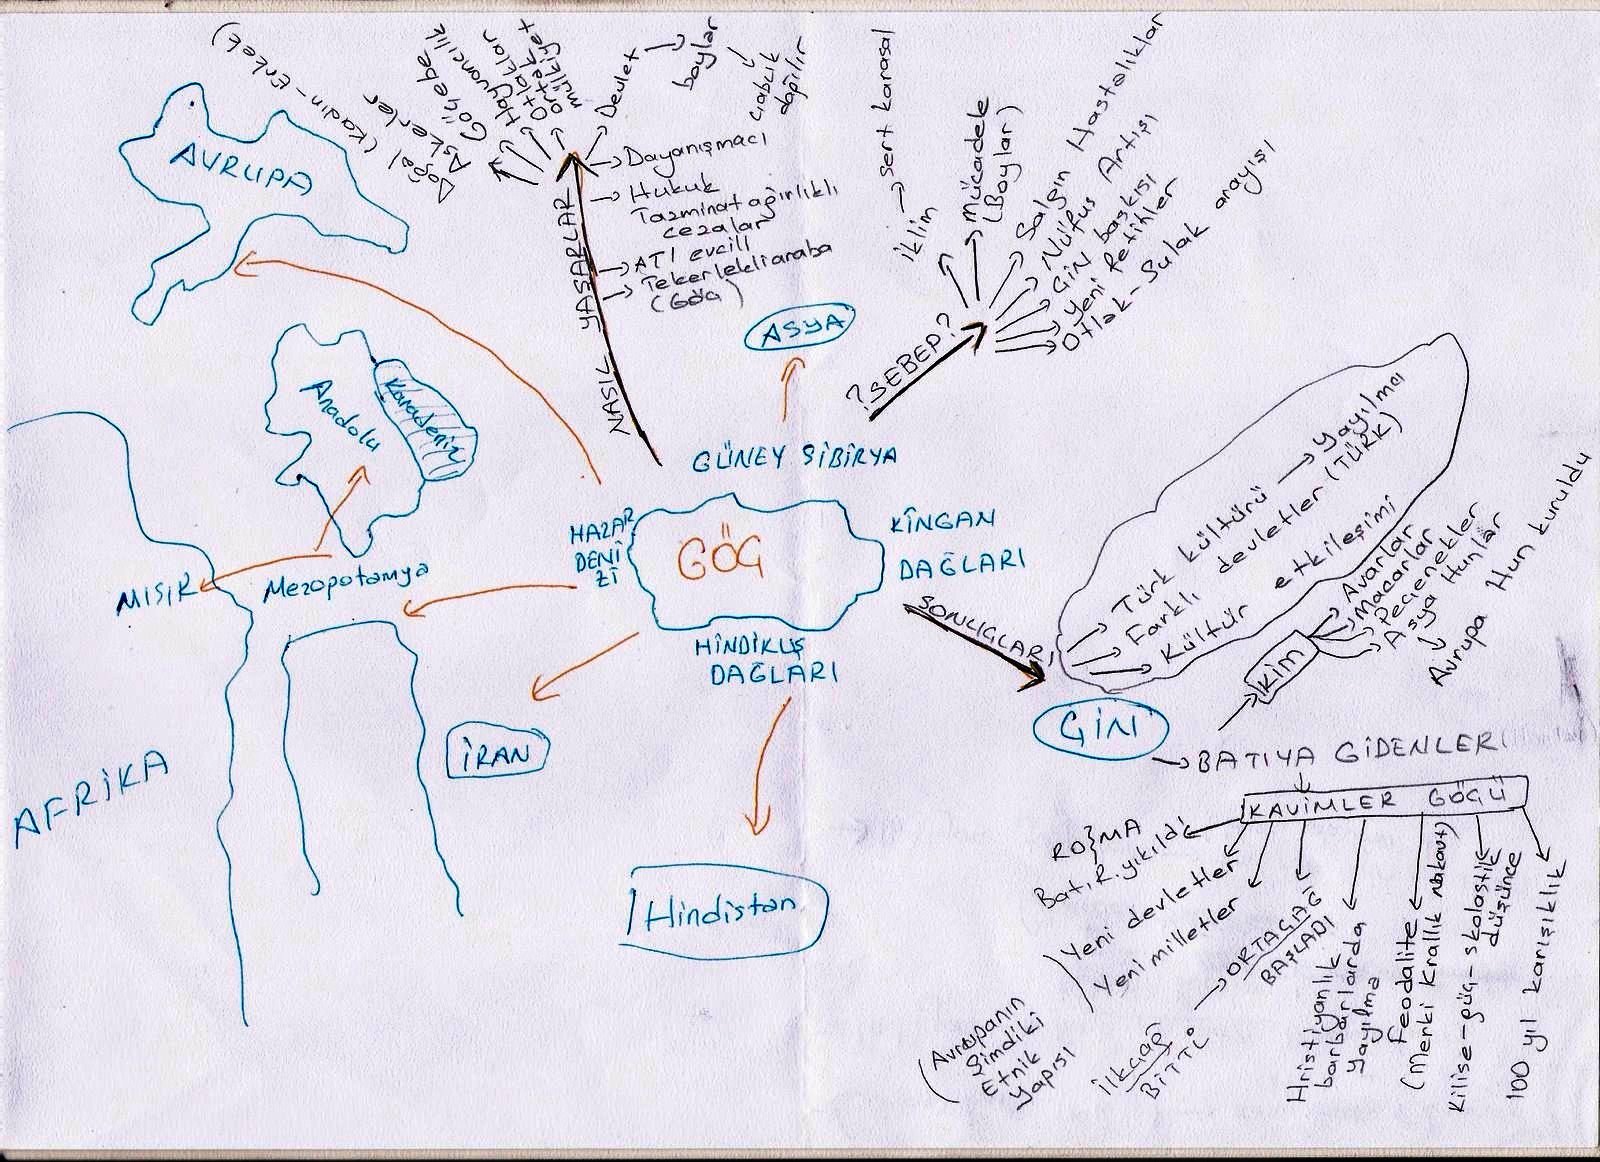 AVRUPA
Doğal (Kadın-Erkek)
Askerler
Göçebe
Hayvancılık
Otlaklar
ortak
mülkiyet
Devlet → boylar
↓
çabucak
dağılır
Dayanışmacı
Hukuk
Tazminat ağırlıklı
cezalar
ATI evcill
Tekerlekli araba
(Göç)
NASIL YAŞARLAR
ASYA
? SEBEP?
iklim → sert karasal
Mücadele
(Boylar)
Salgın Hastalıklar
Nüfus Artışı
Çin baskısı
Yeni Fetihler
Otlak-Sulak arayışı
Anadolu
Karadeniz
MISIR
Mezopotamya
AFRİKA
GÜNEY SİBİRYA
HAZAR
DENİ
Zİ
GÖÇ
KİNGAN
DAĞLARI
HİNDİKUŞ
DAĞLARI
İRAN
Hindistan
SONUÇLARI
Türk kültürü → yayılmacı
Farklı devletler (TÜRK)
Kültür etkileşimi
ÇİN
KİM
Avarlar
Macarlar
Peçenekler
Asya Hunlar
Avrupa Hun kuruldu
→ BATIYA GİDENLER
KAVİMLER GÖÇÜ
ROMA
Batı.R.yıkıldı
Yeni devletler
Yeni milletler
(Avrupanın
şimdiki
Etnik
yapısı
İlkçağ → ORTAÇAĞ
BİTTİ
BAŞLADI
Hristiyanlık
barbarlarda
yayılma
Feodalite
(Merki Krallık
Kilise-güç-skolastik
düşünce
100 yıl karışıklık